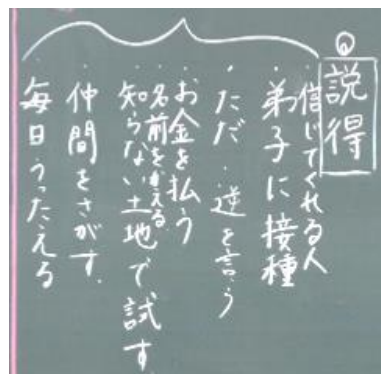 ◎
説得
・信じてくれる人
弟子に接種
・ただ・逆を言う
・お金を払う
・名前を変える
知らない土地で試す
・仲間をさがす。
・毎日うったえる